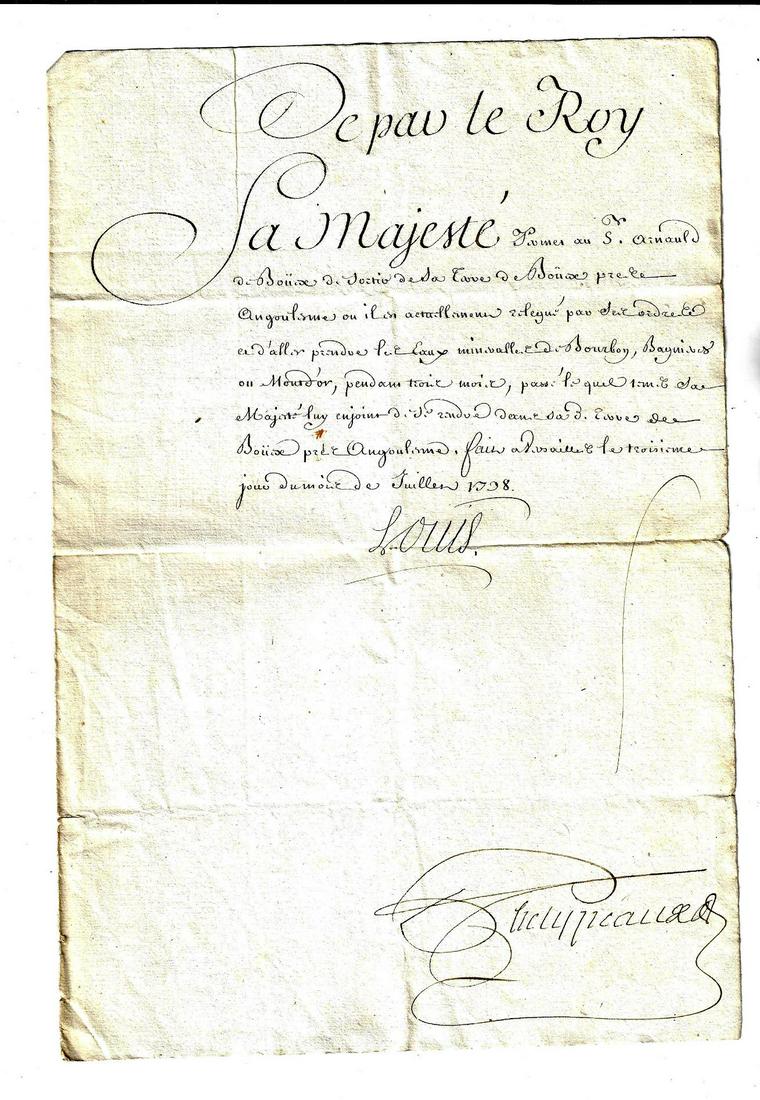 De par le Roy
Sa Majesté Permet au Sr. Arnauld
de Boüex de sortir de sa Terre de Boüex pres
Angoulesme ou il est actuellement relegué par ses ordres
et d'aller prendre les Eaux mineralles de Bourbon, Bagnieres
ou Montd'or, pendant trois mois, passé lequel temps Sa
Majesté luy enjoint de se rendre dans sad. Terre de
Boüex près Angoulesme. fait a Versailles le troisieme
jour du mois de Juillet 1738.
Louis
Phelypeaux